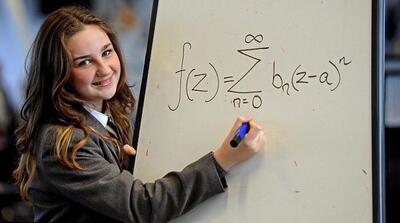 f(z) = ∑_{n=0}^{∞} bₙ(z-a)ⁿ